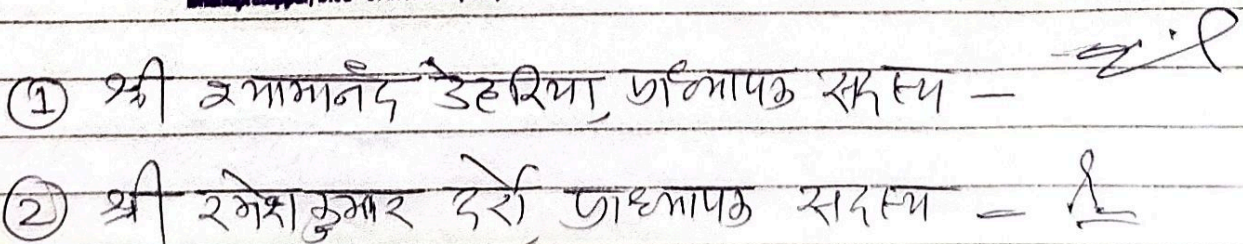 ① श्री श्यामानंद डेहरिया, प्राध्यापक सदस्य –
② श्री रमेश कुमार दर्रो, प्राध्यापक सदस्य –